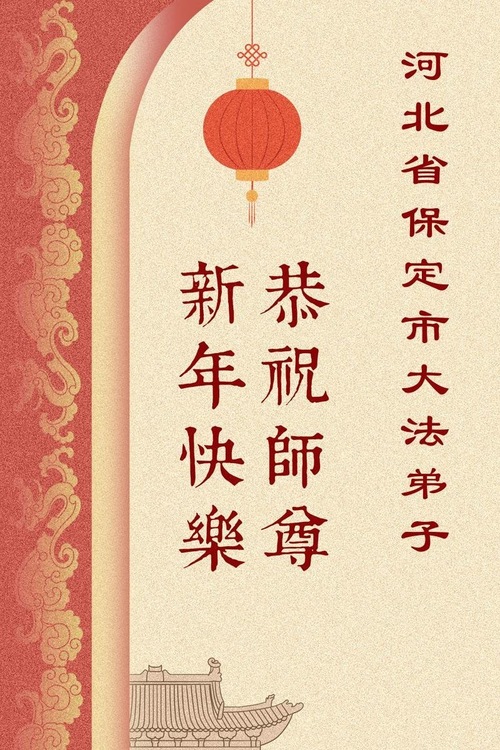 河北省保定市大法弟子
恭祝師尊
新年快樂